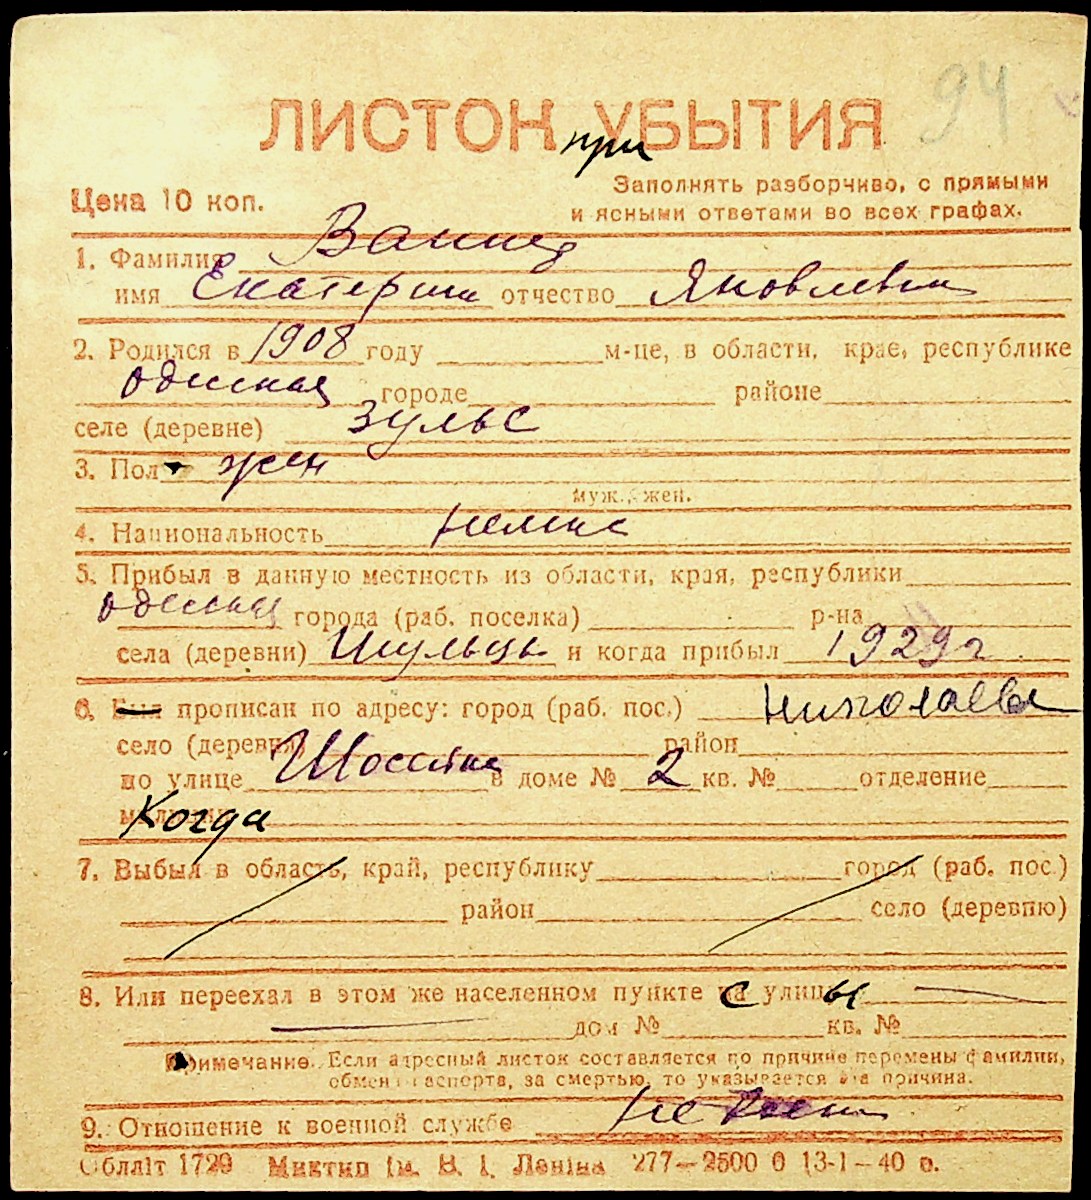 94
ЛИСТОК УБЫТИЯ
при
Цена 10 коп.
Заполнять разборчиво, с прямыми
и ясными ответами во всех графах.
1. Фамилия
имя Екатерина отчество Яковлевна
2. Родился в 1908 году м-це, в области, крае, республике
Одесская городе районе
селе (деревне) Зульс
3. Пол жен
муж., жен.
4. Национальность немка
5. Прибыл в данную местность из области, края, республики
Одесская города (раб. поселка) р-на
села (деревни) Шульцы и когда прибыл 1929 г
6. прописан по адресу: город (раб. пос.) Николаев
село (деревня) район
по улице Шоссейная в доме № 2 кв. № отделение
милиции Когда
7. Выбыл в область, край, республику город (раб. пос.)
район село (деревню)
8. Или переехал в этом же населенном пункте с улицы
дом № кв. №
Примечание. Если адресный листок составляется по причине перемены фамилии,
обмена паспорта, за смертью, то указывается эта причина.
9. Отношение к военной службе
Обліт 1729 Миктип ім. В. І. Леніна 277—2500 0 13-1—40 р.